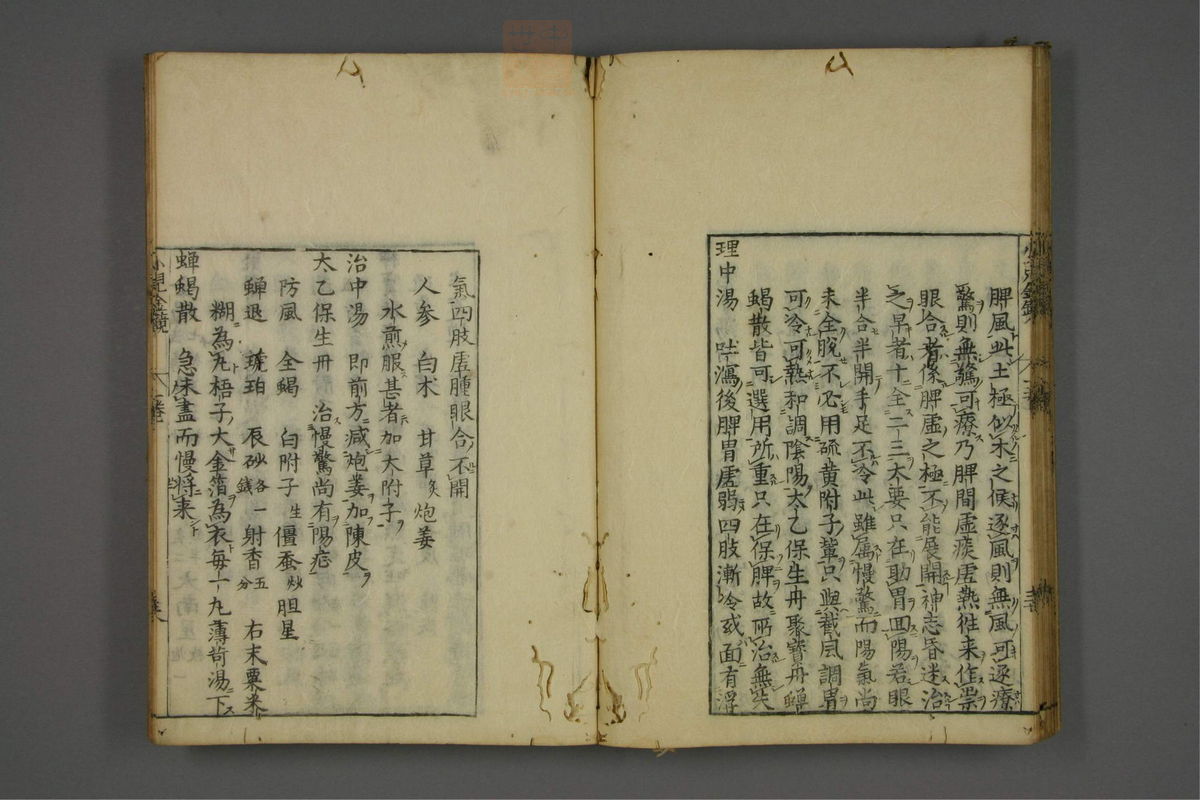 脾風此土極似木之候逐風則無風可逐療
驚則無驚可療乃脾間虛痰虛熱徃来作祟
眼合者係脾虛之極不能展開神志昏迷治
之早者十全二三大要只在助胃回陽若眼
半合半開手足不冷此雖属慢驚而陽氣尚
未全脫不必用硫黄附子軰只與截風調胃
可冷可熱和調陰陽太乙保生丹聚寶丹蟬
蝎散皆可選用所重只在保脾故所治無失
理中湯 吐瀉後脾胃虛弱四肢漸冷或面有浮
氣四肢虛腫眼合不開
人参 白朮 甘草炙 炮姜
水煎服甚者加大附子
治中湯 即前方减炮姜加陳皮
太乙保生丹 治慢驚尚有陽症
防風 全蝎 白附子生 僵蚕炒 胆星
蝉退 琥珀 辰砂各一錢 射香五分 右末粟米
糊為丸梧子大金箔為衣每一丸薄荷湯下
蝉蝎散 急未盡而慢将来
小児金鏡